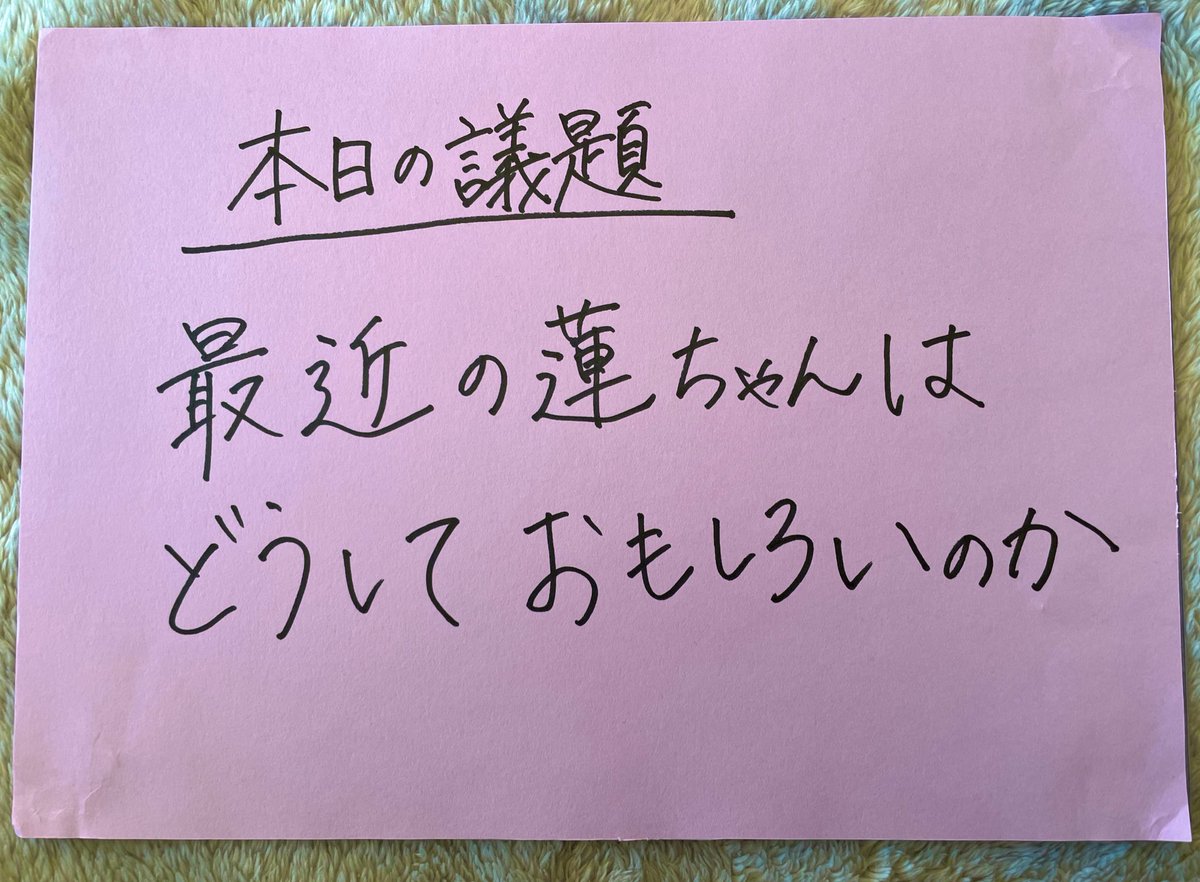 本日の議題
最近の蓮ちゃんは
どうしておもしろいのか